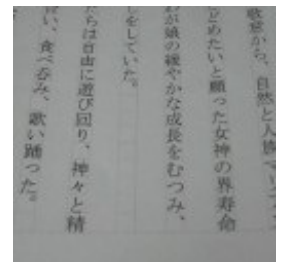 歌患から、自然と人族
どめたいと願った女神の界寿命
が娘の緩やかな成長をむつみ、
しをしていた。
ちは自由に遊び回り、神々と精
い、食べ呑み、歌い踊った。